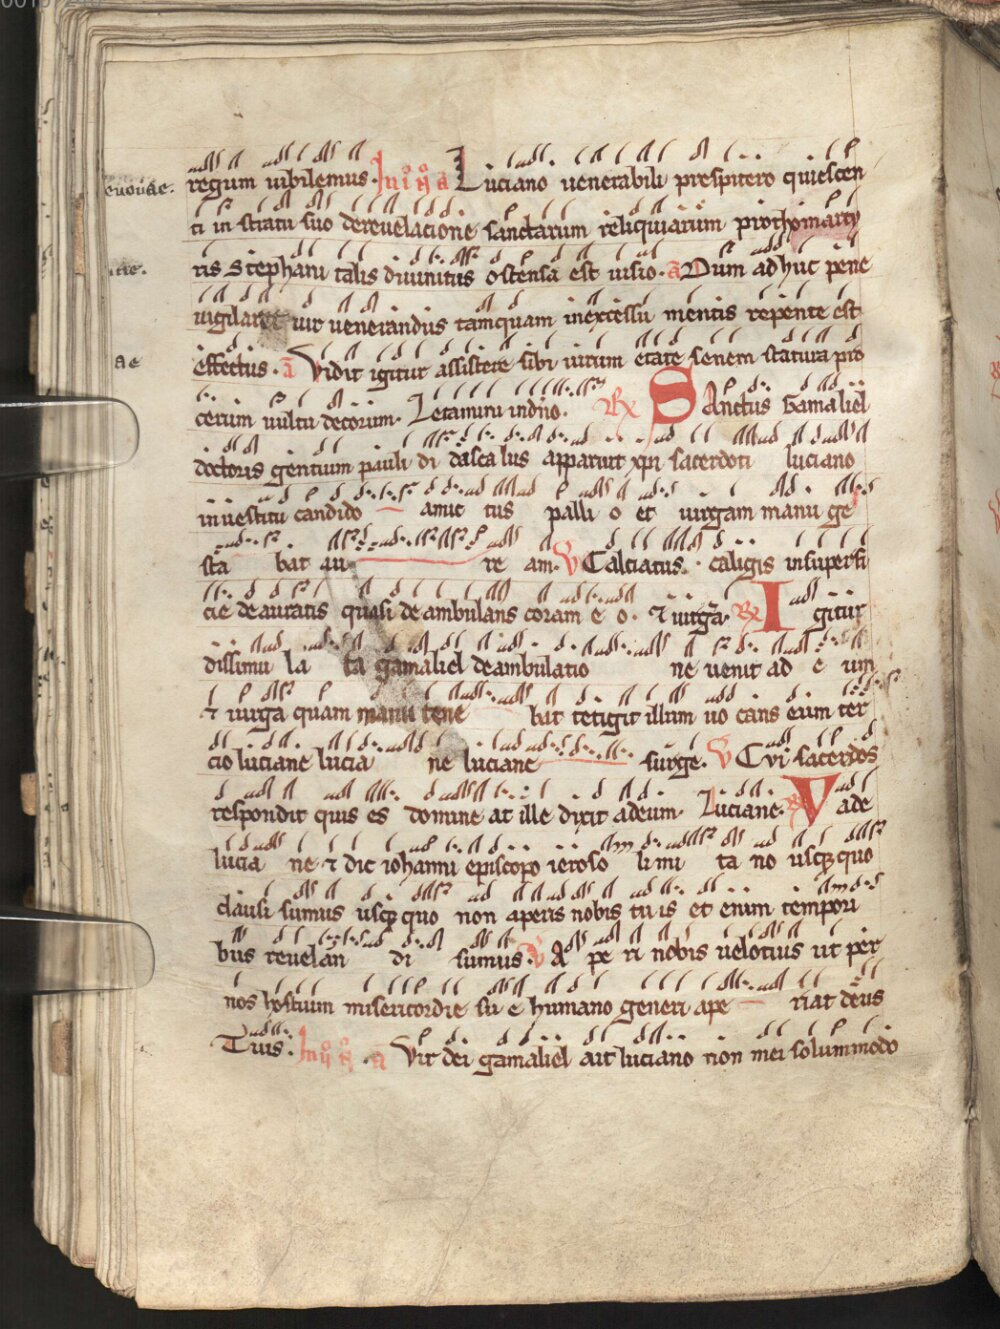 euouae. regum iubilemus. In i n a Luciano uenerabili prespitero quiescen
ti in stratu suo de reuelacione sanctarum reliquiarum prothomarty
ris Stephani talis diuinitus ostensa est uisio. a Dum adhuc pene
uigilaret uir uenerandus tamquam inexcessu mentis repente est
ae effectus. a Vidit igitur assistere sibi uirum etate senem statura pro
cerum uultu decorum. Letamini indno. Rx SAnctus Gamaliel
doctoris gentium pauli di dasca lus apparuit xpi sacerdoti luciano
inuestitu candido amic tus palli o et uirgam manu ge
sta bat au re am. V Calciatus caligis insuperfi
cie deauratis quasi deambulans coram e o. & uirga. Rx I gitur
dissimu la ta gamaliel deambulatio ne uenit ad e um
& uirga quam manu tene bat tetigit illum uo cans eum ter
cio luciane lucia ne luciane surge. V Cvi sacerdos
respondit quis es domine at ille dixit adeum. Luciane. Rx Vade
lucia ne & dic iohanni episcopo ieroso limi ta no usq; quo
clausi sumus usq; quo non aperis nobis tu is et enim tempori
bus reuelan di sumus. V A pe ri nobis uelotius ut per
nos hostium misericordie su e humano generi ape riat deus
Tuis. In n. a Vir dei gamaliel ait luciano non mei solummodo